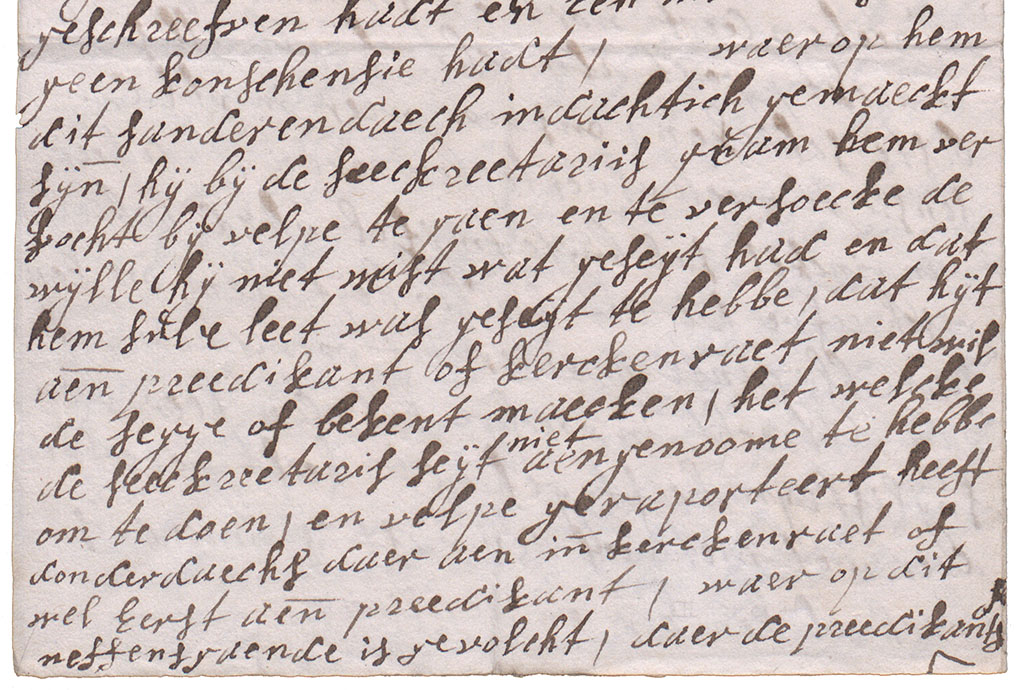 geschreefven hadt en
geen konschensie hadt, waer op hem
dit sanderendaech indachtich gemaeckt
sÿn, hÿ bÿ de seeckreetariis quam hem ver
socht bÿ velpe te gaen en te versoecke de
wÿlle hÿ niet wist wat geseÿt had en dat
hem sulve leet was geseÿt te hebbe, dat hÿt
aen preedikant of kerckenraet niet wil
de segge of bekent maecken, het welcke
de seeckreetaris seÿt niet aengenoome te hebbe
om te doen, en velpe geraporteert heeft
donderdaechs daer aen in kerckenraet of
wel eerst aen preedikant, waer op dit
neffensgaende is gevolcht, daer de preedikants